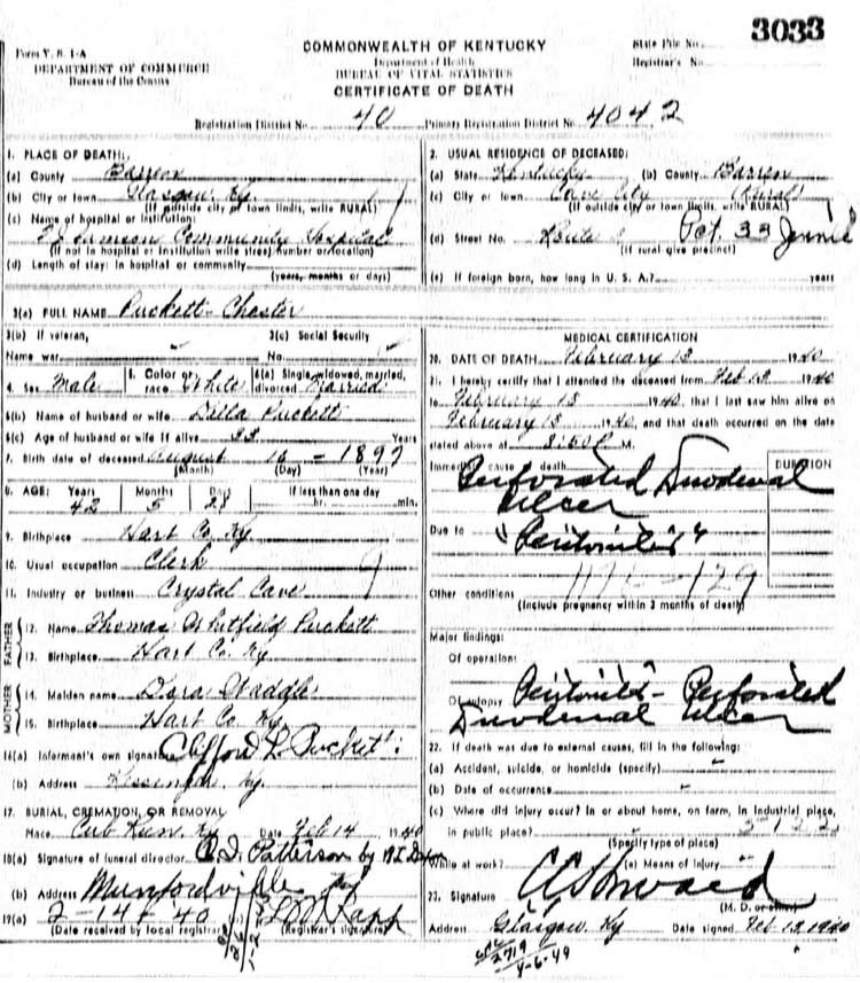 3033
Form V. S. 1-A
DEPARTMENT OF COMMERCE
Bureau of the Census
COMMONWEALTH OF KENTUCKY
Department of Health
BUREAU OF VITAL STATISTICS
CERTIFICATE OF DEATH
State File No.
Registrar's No.
Registration District No. 40 Primary Registration District No. 4042
1. PLACE OF DEATH:
(a) County Barren
(b) City or town Glasgow, Ky.
(If outside city or town limits, write RURAL)
(c) Name of hospital or institution:
T J Samson Community Hospital
(If not in hospital or institution write street number or location)
(d) Length of stay: In hospital or community
(years, months or days)
2. USUAL RESIDENCE OF DECEASED:
(a) State Kentucky (b) County Barren
(c) City or town Cave City (Rural)
(If outside city or town limits, write RURAL)
(d) Street No. Route Pct. 33
(If rural give precinct)
(e) If foreign born, how long in U. S. A.? years
3(a) FULL NAME Puckett - Chester
3(b) If veteran, 3(c) Social Security
Name war No.
4. Sex Male 5. Color or race White 6(a) Single, widowed, married, divorced Married
6(b) Name of husband or wife Dilla Puckett
6(c) Age of husband or wife if alive 33 Years
7. Birth date of deceased August 16 - 1897
(Month) (Day) (Year)
8. AGE: Years Months Days If less than one day
42 5 28 hr. min.
9. Birthplace Hart Co. Ky
10. Usual occupation Clerk
11. Industry or business Crystal Cave
FATHER
12. Name Thomas Whitfield Puckett
13. Birthplace Hart Co. Ky
MOTHER
14. Maiden name Dora Waddle
15. Birthplace Hart Co. Ky.
16(a) Informant's own signature Clifford L Puckett
(b) Address Kessinger, Ky.
17. BURIAL, CREMATION, OR REMOVAL
Place Cub Run, Ky Date Feb 14 1940
18(a) Signature of funeral director Patterson by
(b) Address Munfordville Ky
19(a) 2-14-40
(Date received by local registrar) (Registrar's signature)
MEDICAL CERTIFICATION
20. DATE OF DEATH February 13 1940
21. I hereby certify that I attended the deceased from Feb 12 1940
to February 13 1940, that I last saw him alive on
February 13 1940, and that death occurred on the date
stated above at 8:50 P M.
Immediate cause of death DURATION
Perforated Duodenal
Ulcer
Due to "Peritonitis"
Other conditions
(Include pregnancy within 3 months of death)
Major findings:
Of operation:
Of autopsy Peritonitis - Perforated
Duodenal Ulcer
22. If death was due to external causes, fill in the following:
(a) Accident, suicide, or homicide (specify)
(b) Date of occurrence
(c) Where did injury occur? In or about home, on farm, in industrial place,
in public place?
(Specify type of place)
While at work? (e) Means of injury
23. Signature
(M. D. or other)
Address Glasgow, Ky Date signed Feb 13, 1940
2719
4-6-49